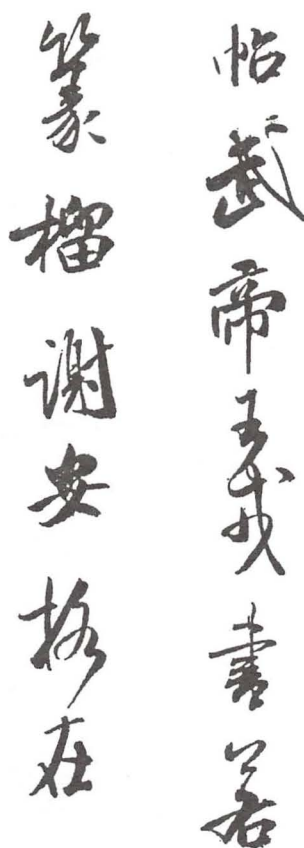 帖武帝王戎書若
篆榴謝安格在